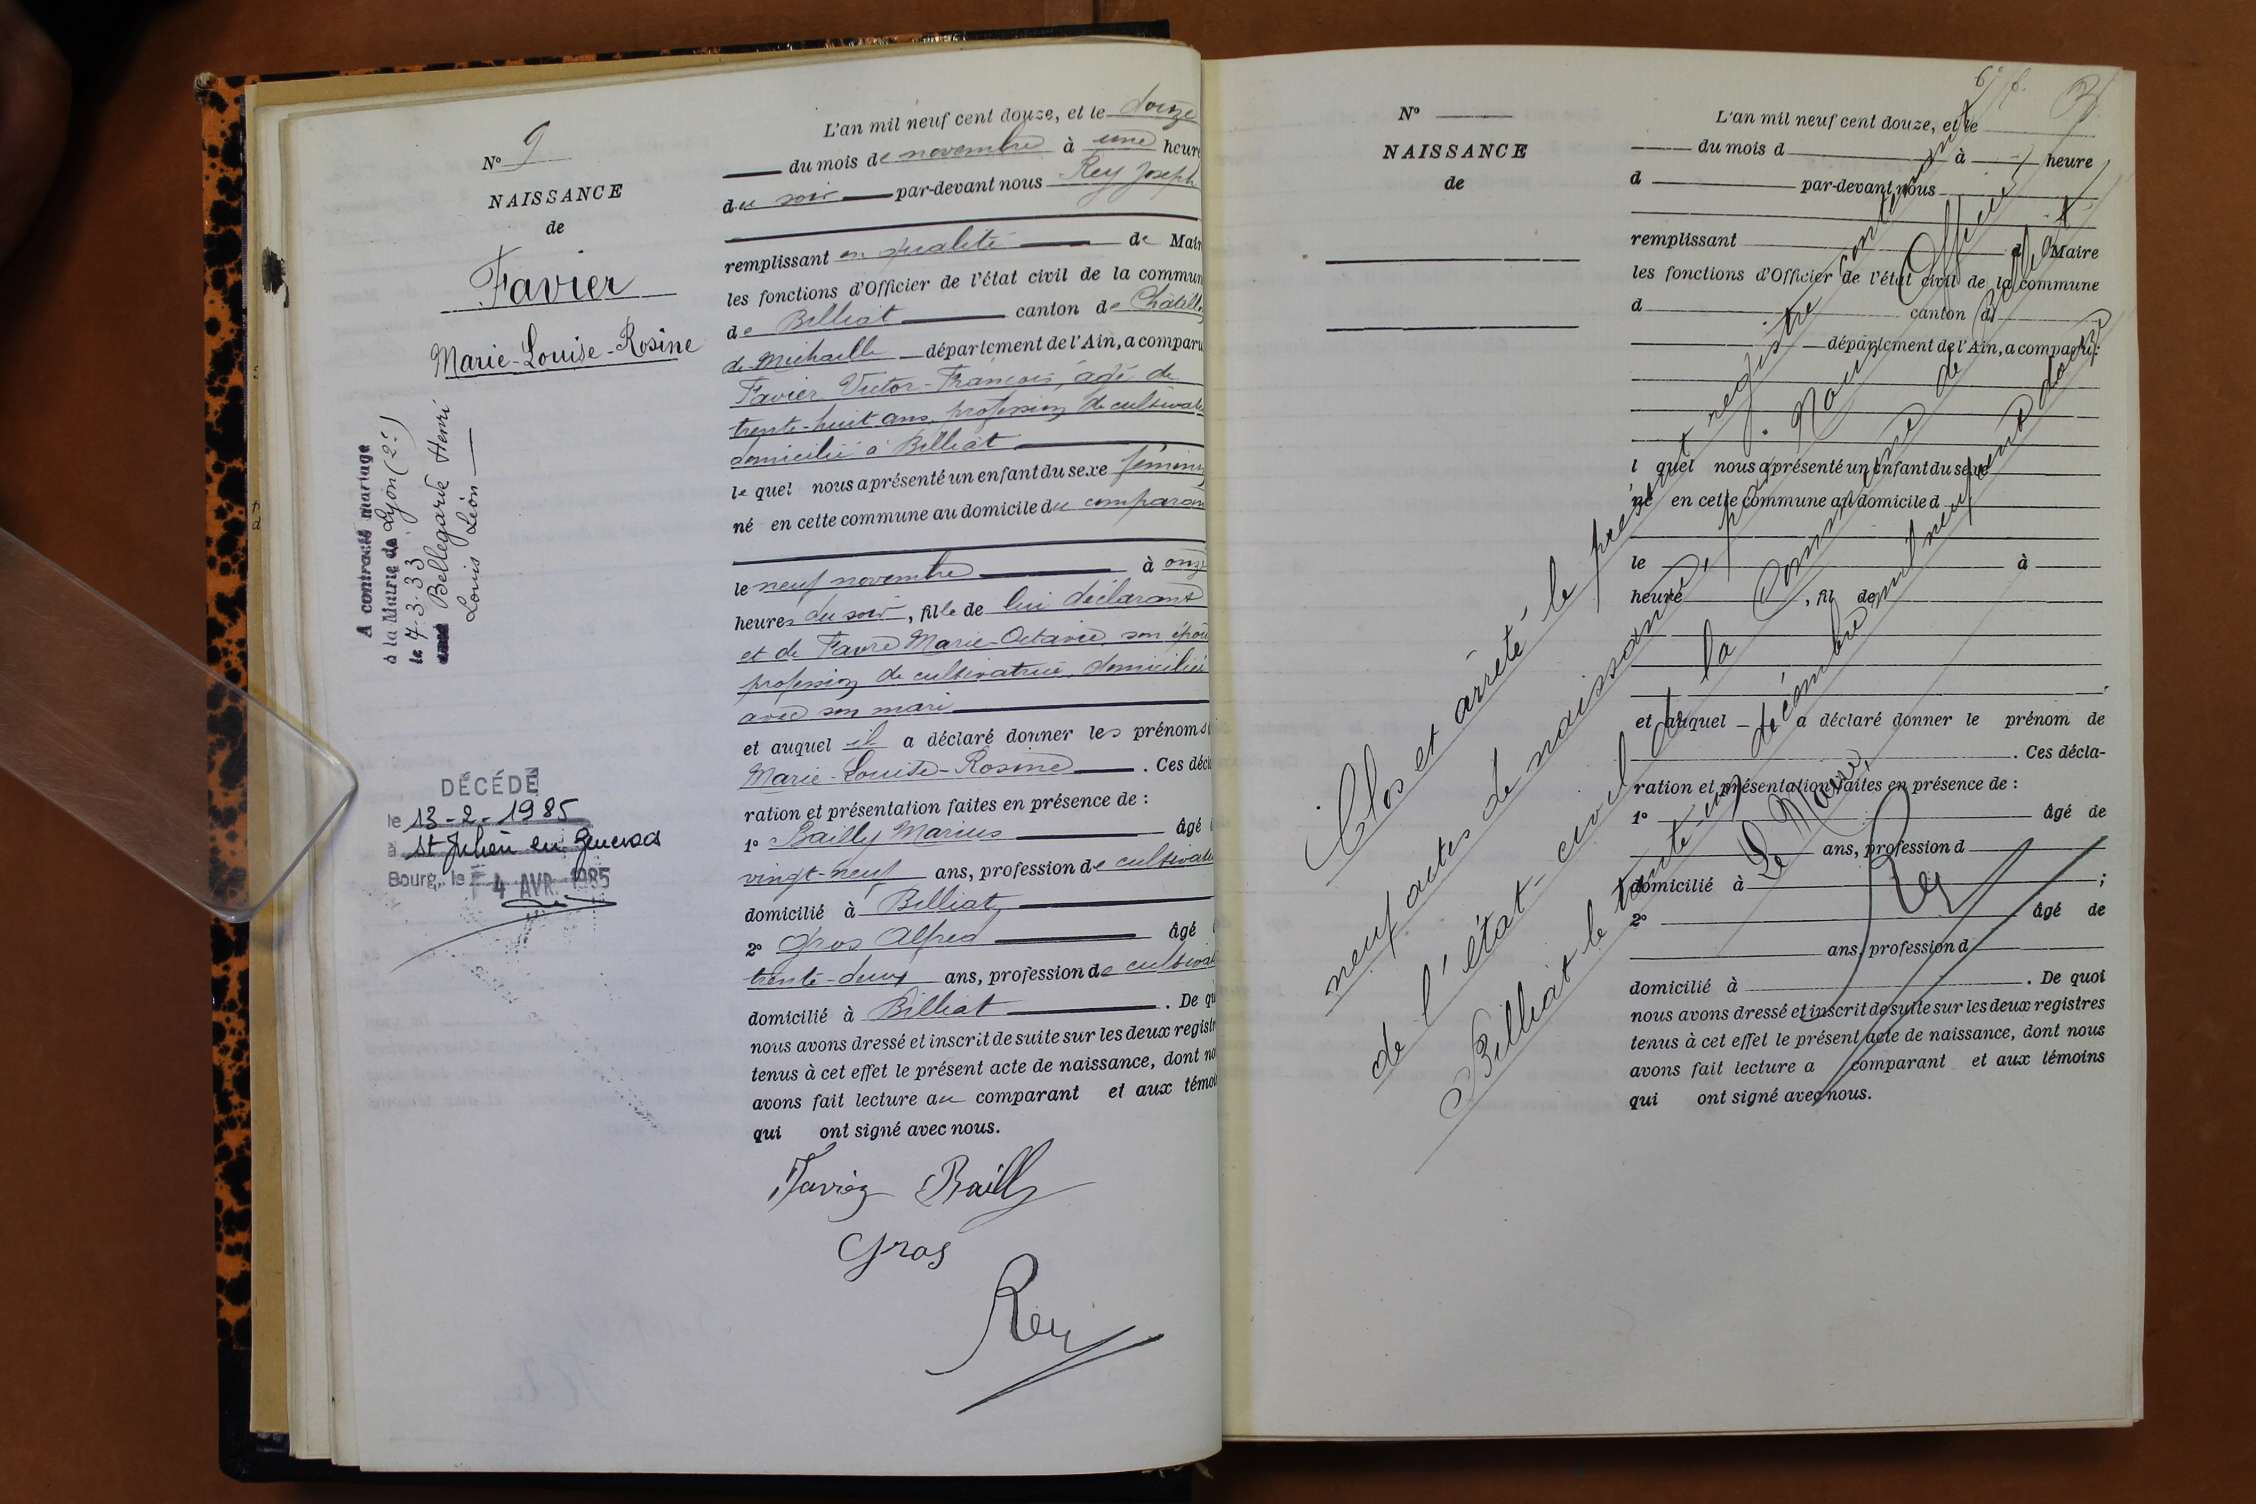 N° 9
NAISSANCE
de
Favier
Marie-Louise-Rosine
A contracté mariage
à la Mairie de Lyon (2e)
le 7.3.33
avec Bellegarde Henri
Louis Léon
DÉCÉDÉ
le 13-2-1985
à St Julien en Genevois
Bourg, le 4 AVR. 1985
L'an mil neuf cent douze, et le douze
du mois de novembre à une heure
du soir par-devant nous Rey Joseph
remplissant en qualité de Mair
les fonctions d'Officier de l'état civil de la commun
de Billiat canton de Châtill
de Michaille département de l'Ain, a comparu
Favier Victor-François, âgé de
trente-huit ans, profession de cultivate
domicilié à Billiat
le quel nous a présenté un enfant du sexe féminin
né en cette commune au domicile du comparan
le neuf novembre à onz
heures du soir, fille de lui déclarant
et de Favre Marie-Octavie, son épou
profession de cultivatrice, domiciliée
avec son mari
et auquel il a déclaré donner les prénoms
Marie-Louise-Rosine. Ces décla
ration et présentation faites en présence de :
1° Bailly Marius âgé
vingt-neuf ans, profession de cultivate
domicilié à Billiat
2° Gros Alfred âgé
trente-deux ans, profession de cultivat
domicilié à Billiat. De qu
nous avons dressé et inscrit de suite sur les deux registr
tenus à cet effet le présent acte de naissance, dont no
avons fait lecture au comparant et aux témoi
qui ont signé avec nous.
Favier Bailly
Gros
Rey
N°
NAISSANCE
de
L'an mil neuf cent douze, et le
du mois d à heure
d par-devant nous
remplissant d Maire
les fonctions d'Officier de l'état civil de la commune
d canton d
département de l'Ain, a comparu:
l quel nous a présenté un enfant du sexe
né en cette commune au domicile d
le à
heure , fil de
et auquel a déclaré donner le prénom de
. Ces décla-
ration et présentation faites en présence de :
1° âgé de
ans, profession d
domicilié à ;
2° âgé de
ans, profession d
domicilié à . De quoi
nous avons dressé et inscrit de suite sur les deux registres
tenus à cet effet le présent acte de naissance, dont nous
avons fait lecture a comparant et aux témoins
qui ont signé avec nous.
Clos et arrêté le présent registre contenant
neuf actes de naissance, par Nous, Officier
de l'état-civil de la Commune de Billiat.
Billiat le trente-un décembre mil neuf cent douze
Le Maire,
Rey